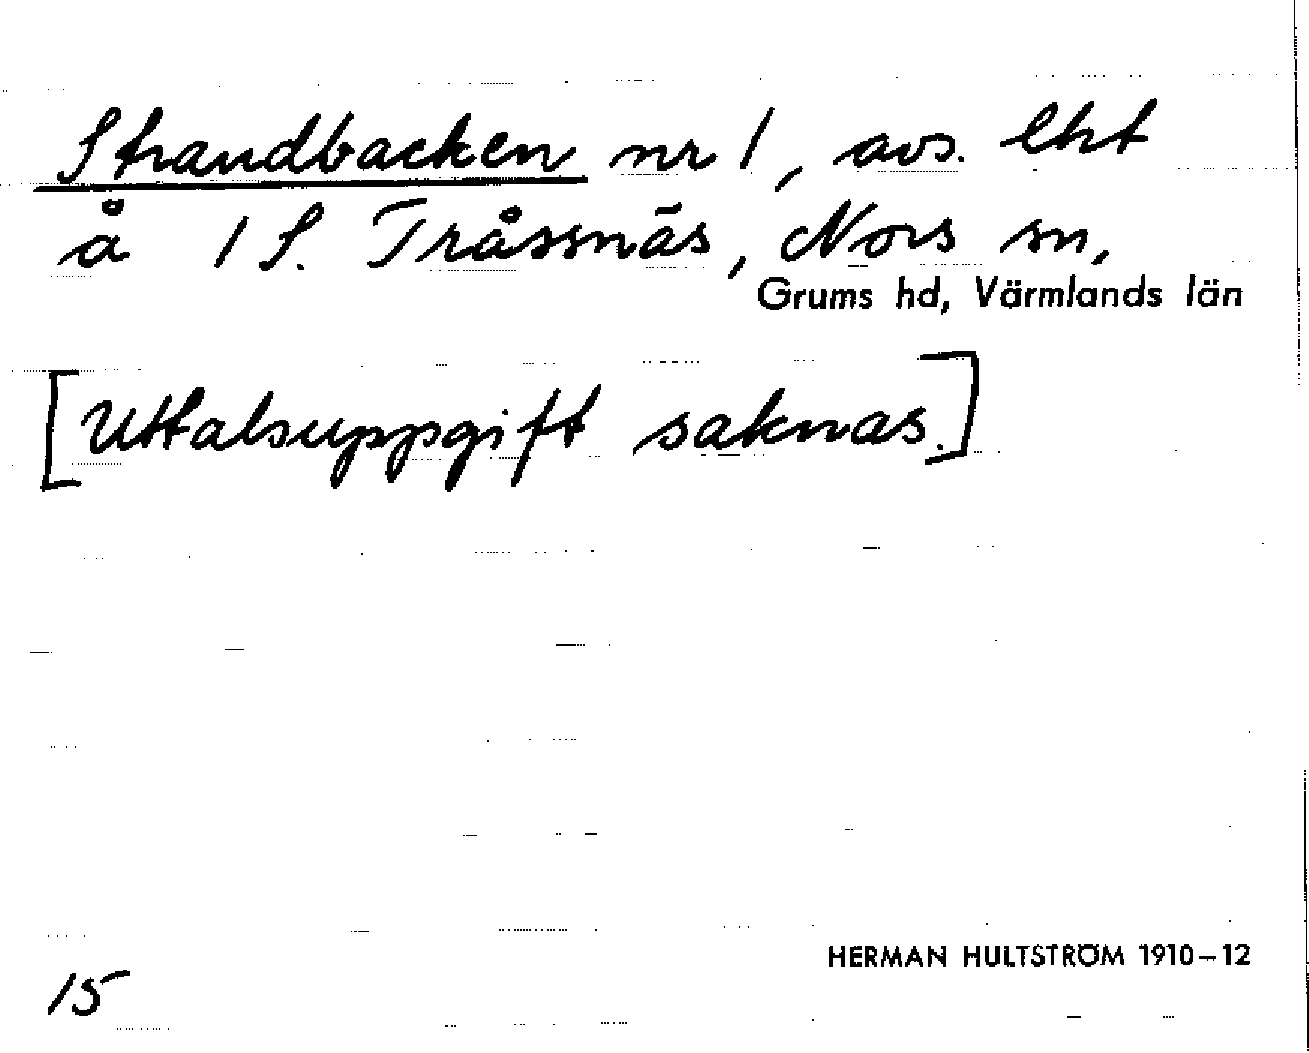 Strandbacken nr 1, avs. lht
å 1 S. Tråssnäs, Nors sn,
Grums hd, Värmlands län
[Uttalsuppgift saknas.]
HERMAN HULTSTRÖM 1910–12
15